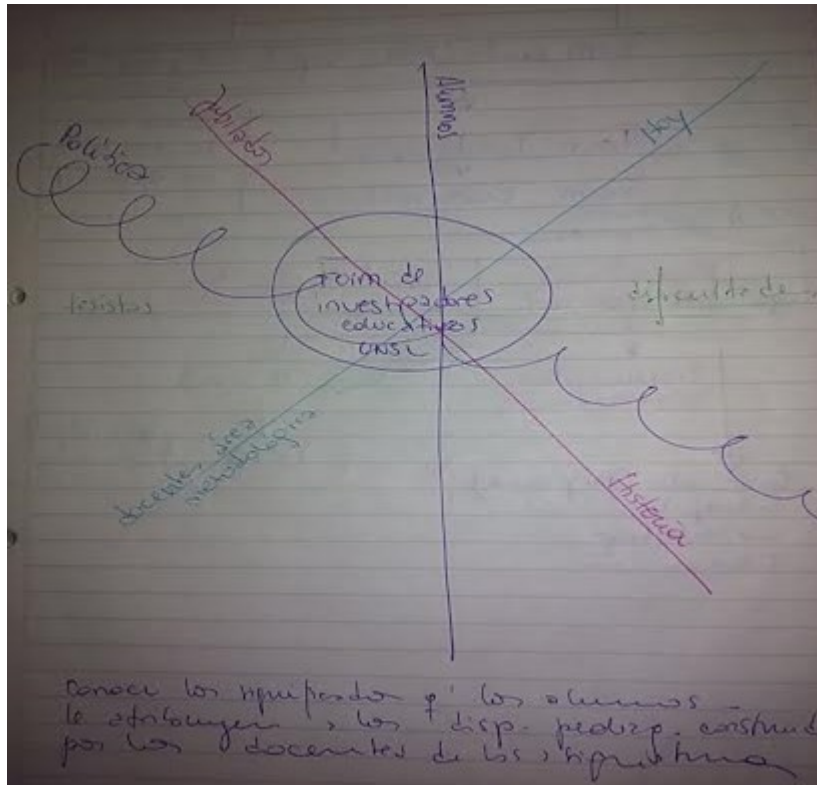 Jubilados
Alumnos
Hoy
Política
Form de
investigadores
educativos
UNSL
tesistas
dificultades de
docentes área
metodológica
Historia
Conocer los significados q' los alumnos
le atribuyen a los disp. pedag. construid
por los docentes de las asignaturas